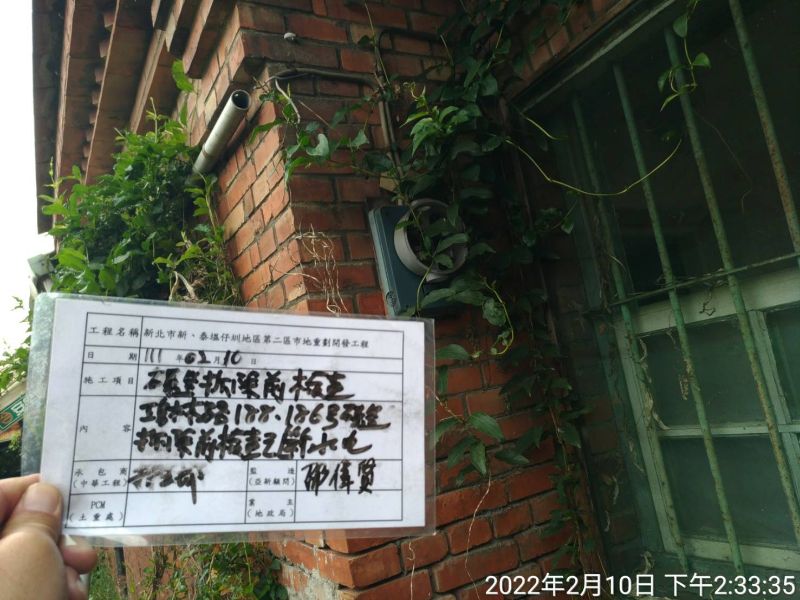 工程名稱 新北市新、泰塭仔圳地區第二區市地重劃開發工程
日期 111年02月10日
施工項目 拆除前檢查
內容 188、186號
拆除前檢查已斷水電
承包商(中華工程) 監造(亞新顧問)
PCM(土重處) 業主(地政局)
2022年2月10日 下午2:33:35